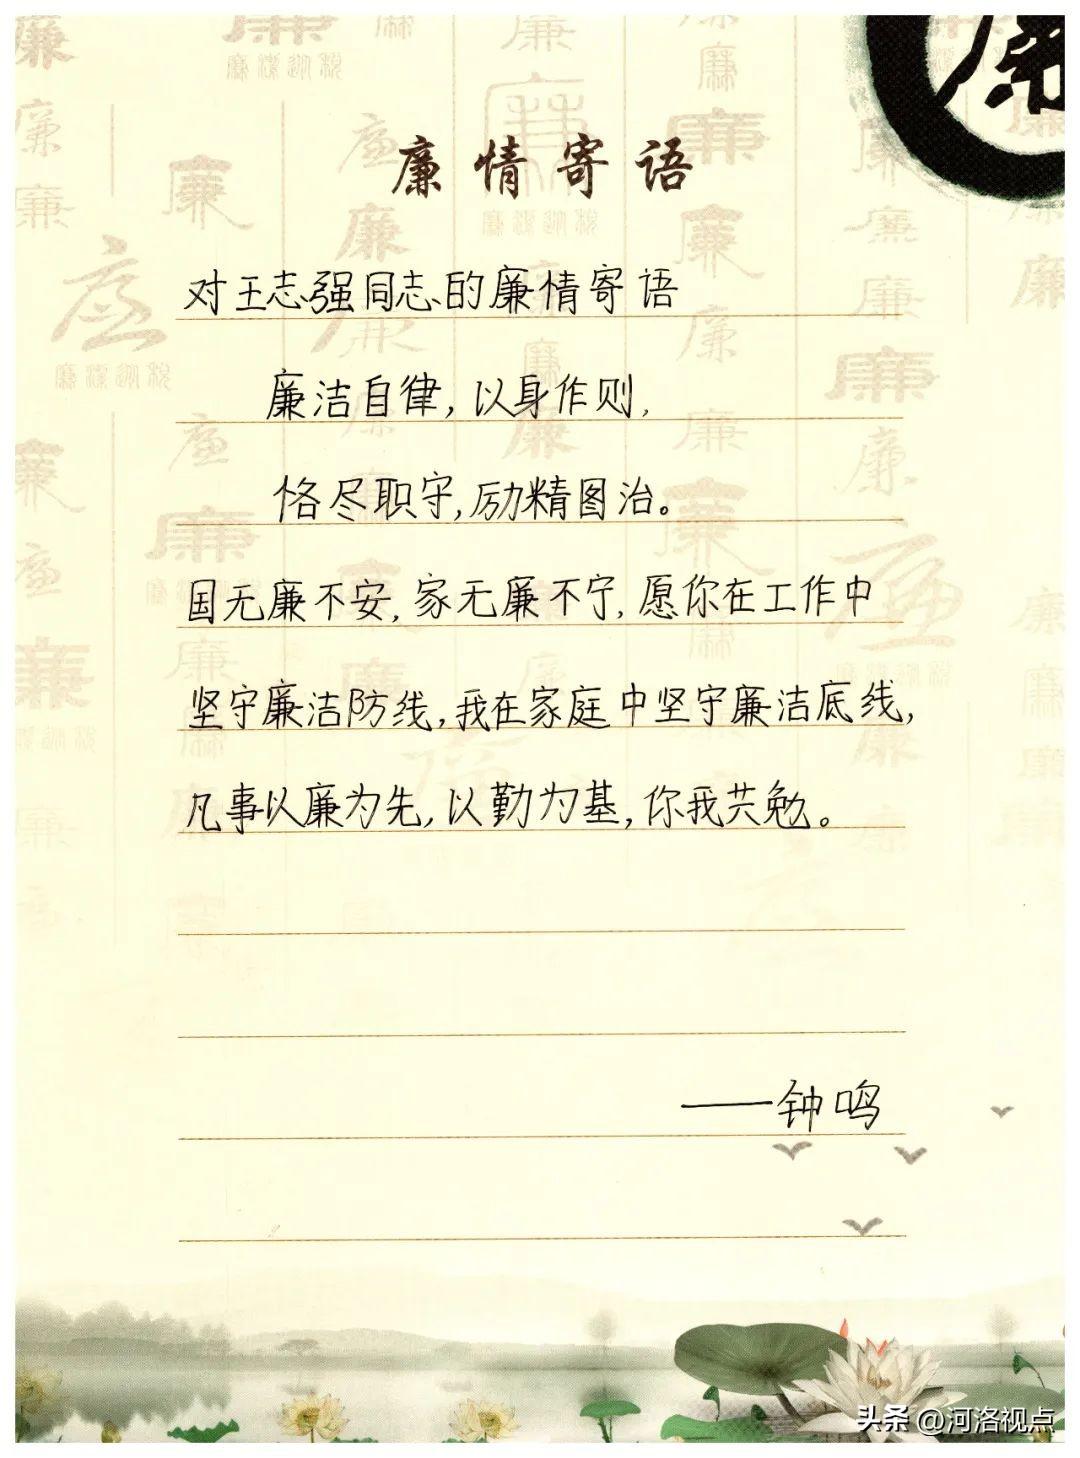 廉
廉情寄语
对王志强同志的廉情寄语
廉洁自律,以身作则,
恪尽职守,励精图治。
国无廉不安,家无廉不宁,愿你在工作中
坚守廉洁防线,我在家庭中坚守廉洁底线,
凡事以廉为先,以勤为基,你我共勉。
——钟鸣
头条 @河洛视点